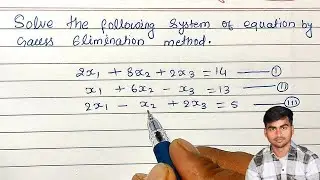 Solve the following system of equation by
Gauss Elimination method.
2x₁ + 8x₂ + 2x₃ = 14 — (I)
x₁ + 6x₂ - x₃ = 13 — (II)
2x₁ - x₂ + 2x₃ = 5 — (III)